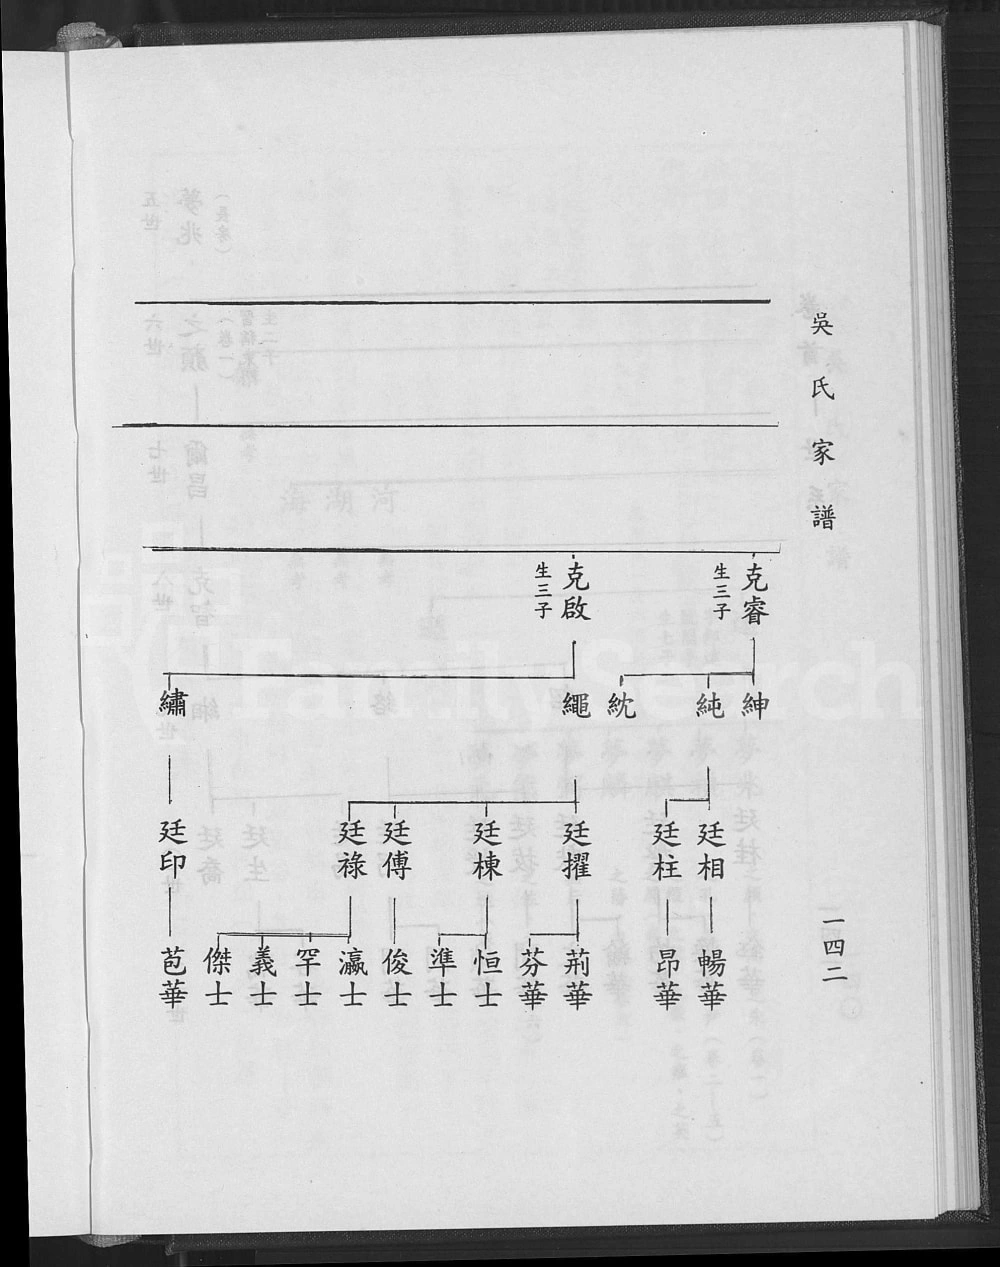 吳氏家譜
一四二
克睿
生三子
克啟
生三子
紳
純
紞
繩
繡
廷相
廷柱
廷擢
廷棟
廷傅
廷祿
廷印
暢華
昂華
荊華
芬華
恒士
準士
俊士
瀛士
罕士
義士
傑士
苞華
FamilySearch